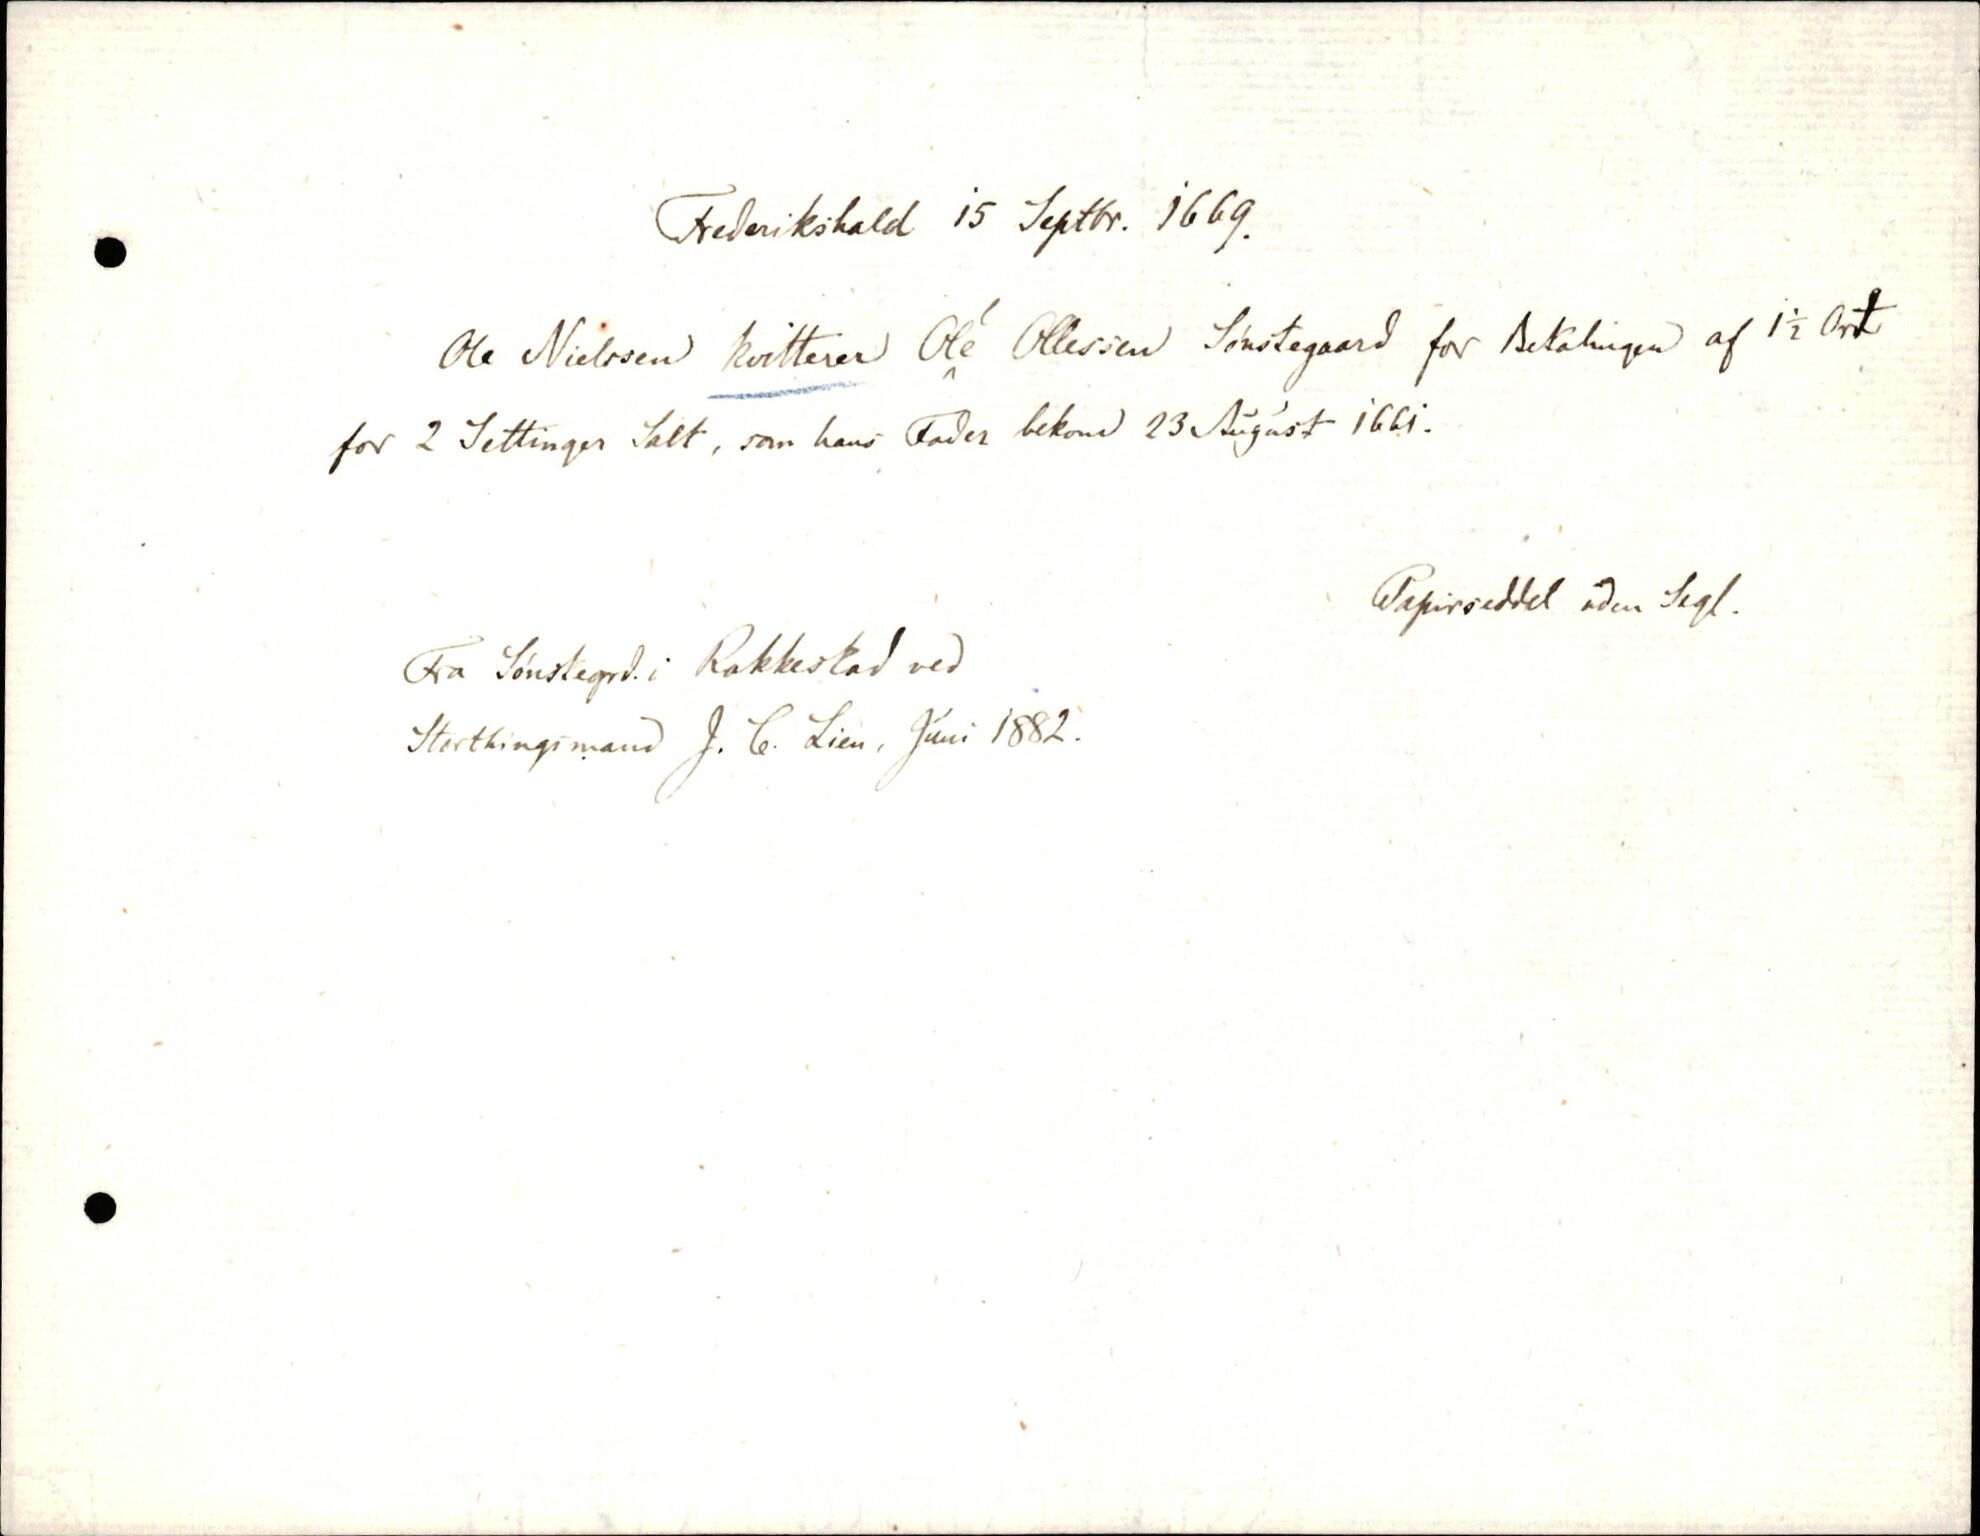 Frederikshald 15 Septbr. 1669.
Ole Nielssen kvitterer Ole Ollessen Sønstegaard for Betalingen af 1½ Ort
for 2 Settinger Salt, som hans Fader bekom 23 August 1661.
Papirseddel uden Segl.
Fra Sønstegrd. i Rakkestad ved
Storthingsmand J. C. Lien, Juni 1882.